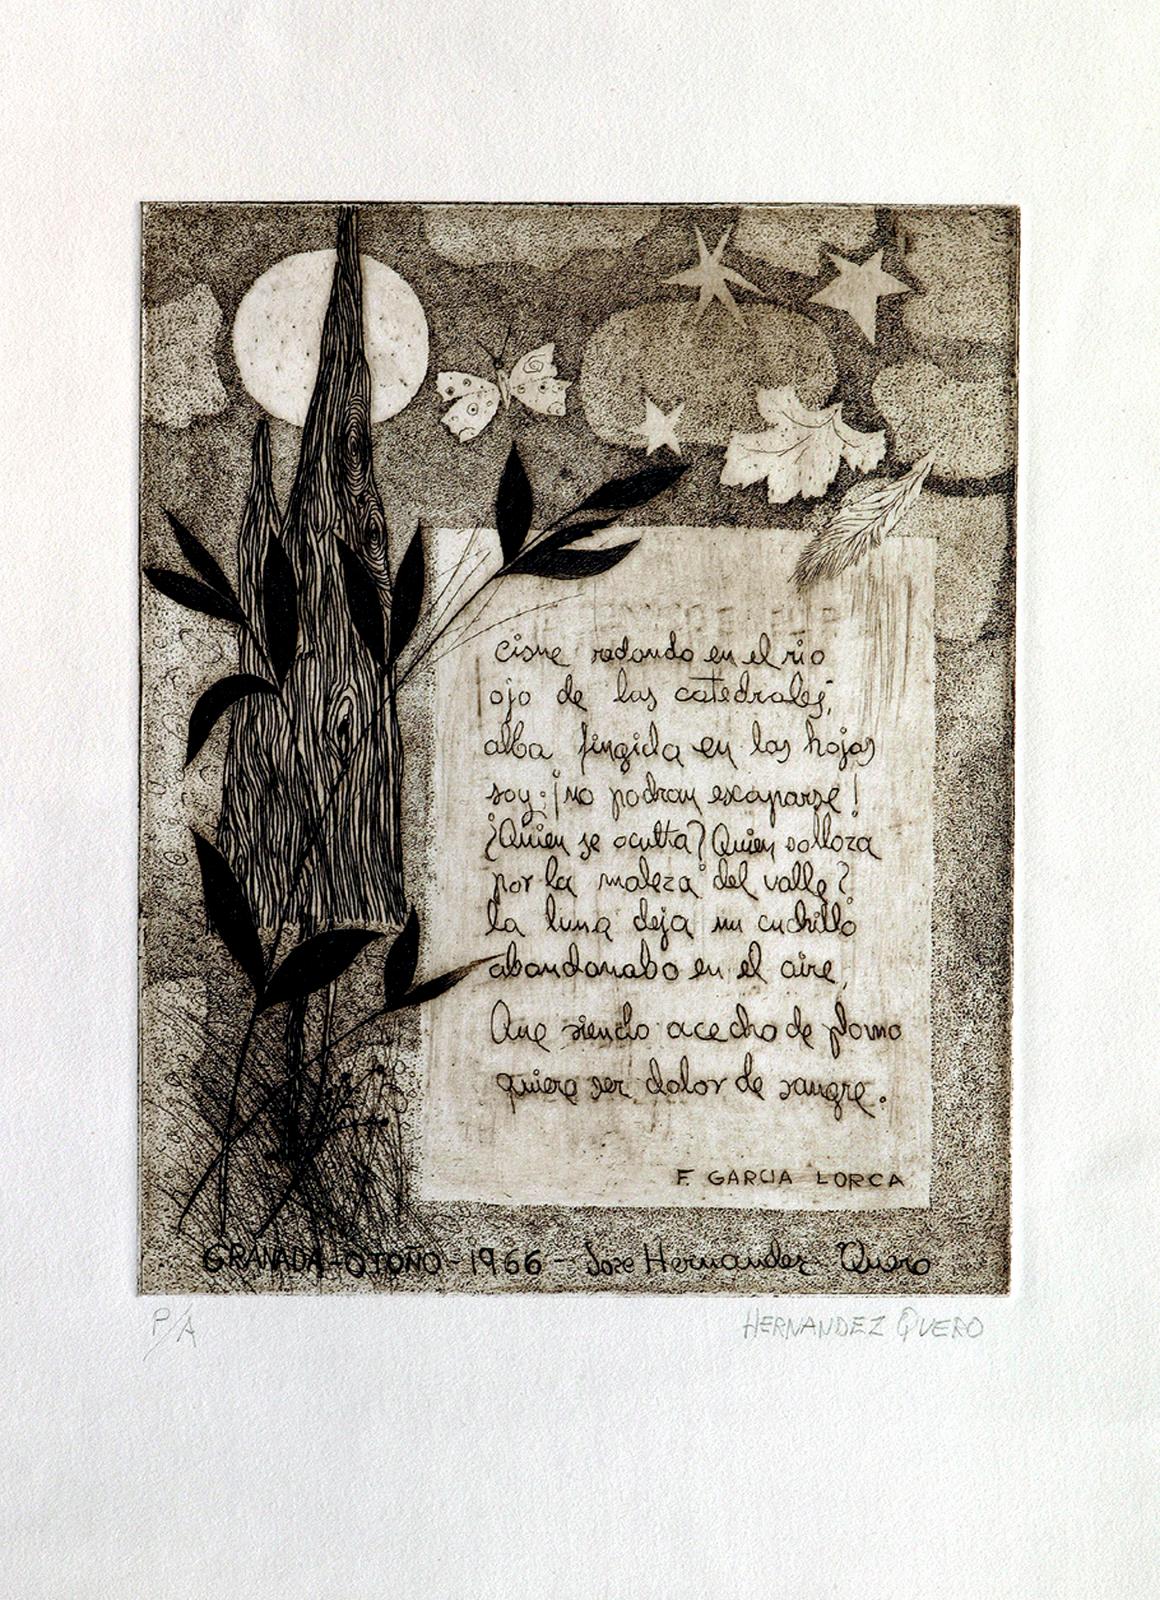 cisne redondo en el rio
ojo de las catedrales,
alba fingida en las hojas
soy; ¡no podran escaparse!
¿Quien se oculta? Quien solloza
por la maleza del valle?
la luna deja un cuchillo
abandonabo en el aire,
Que siendo acecho de plomo
quiere ser dolor de sangre.
F. GARCIA LORCA
GRANADA-OTOÑO-1966-Jose Hernandez Quero
P/A HERNANDEZ QUERO